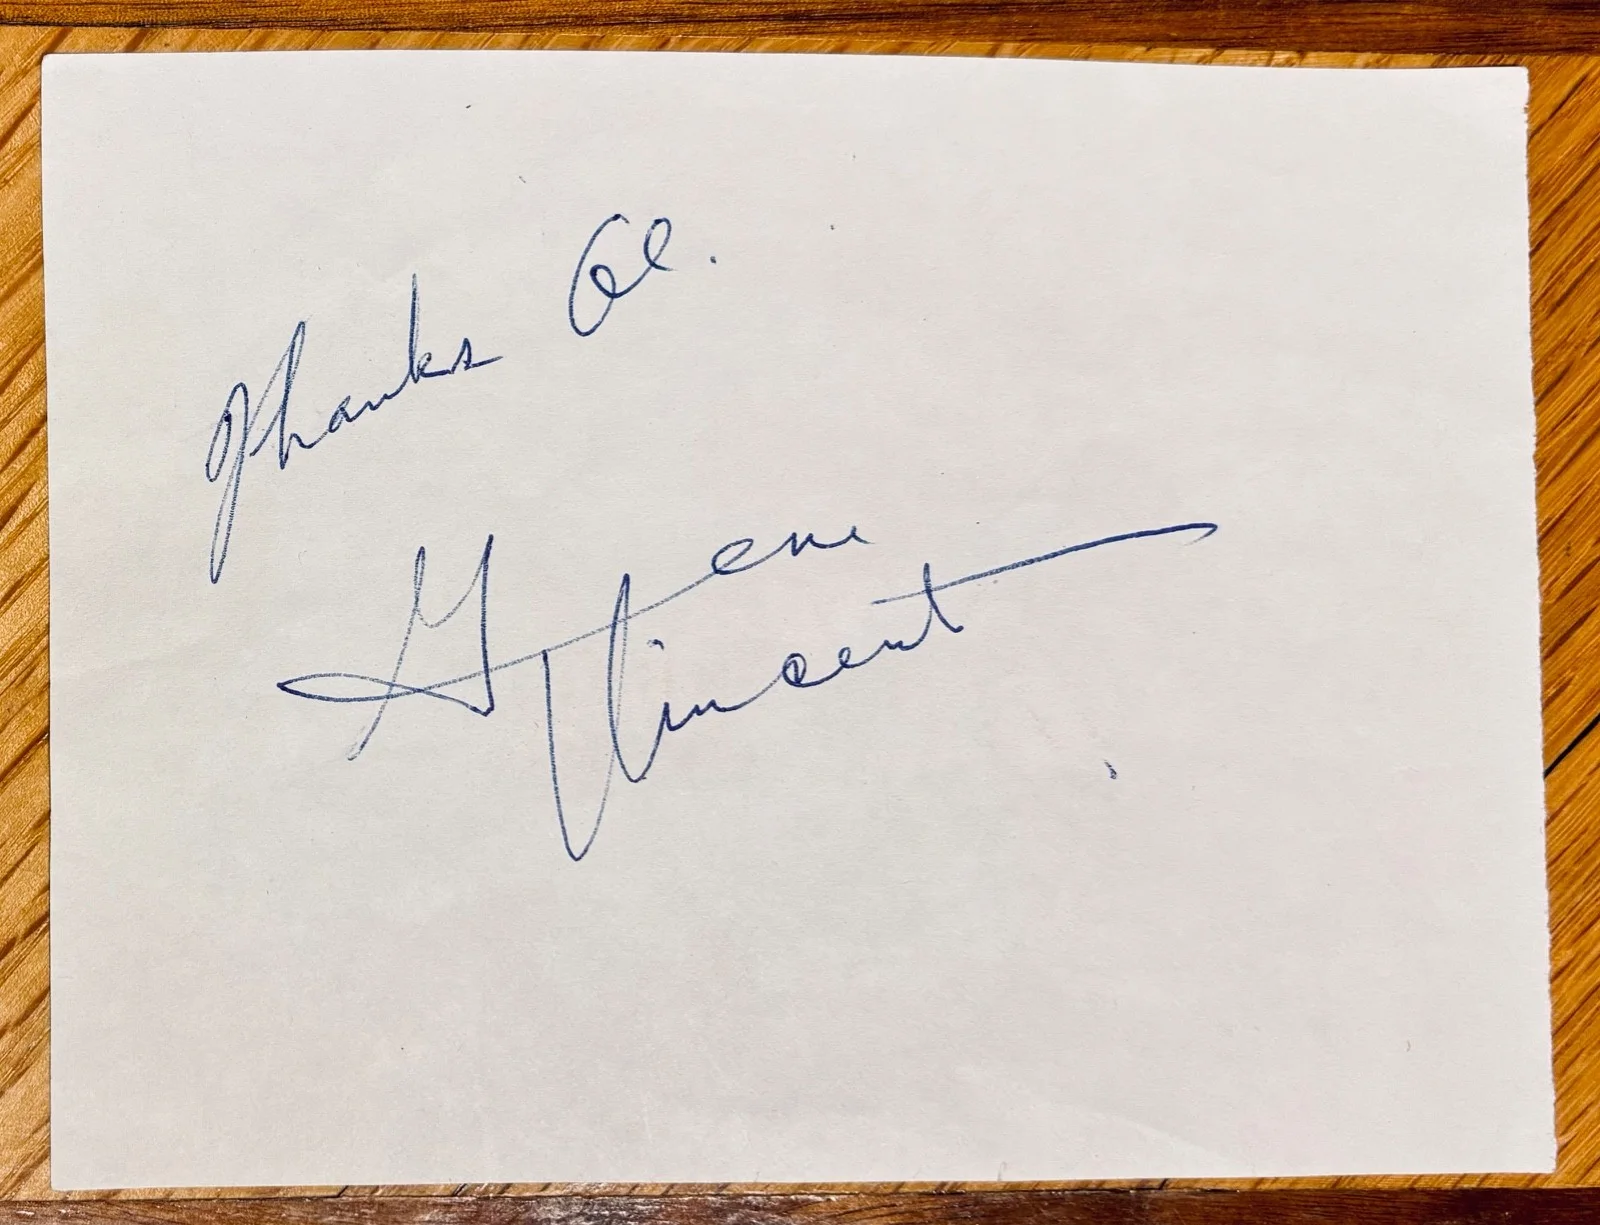 Thanks Al.
Gene
Vincent